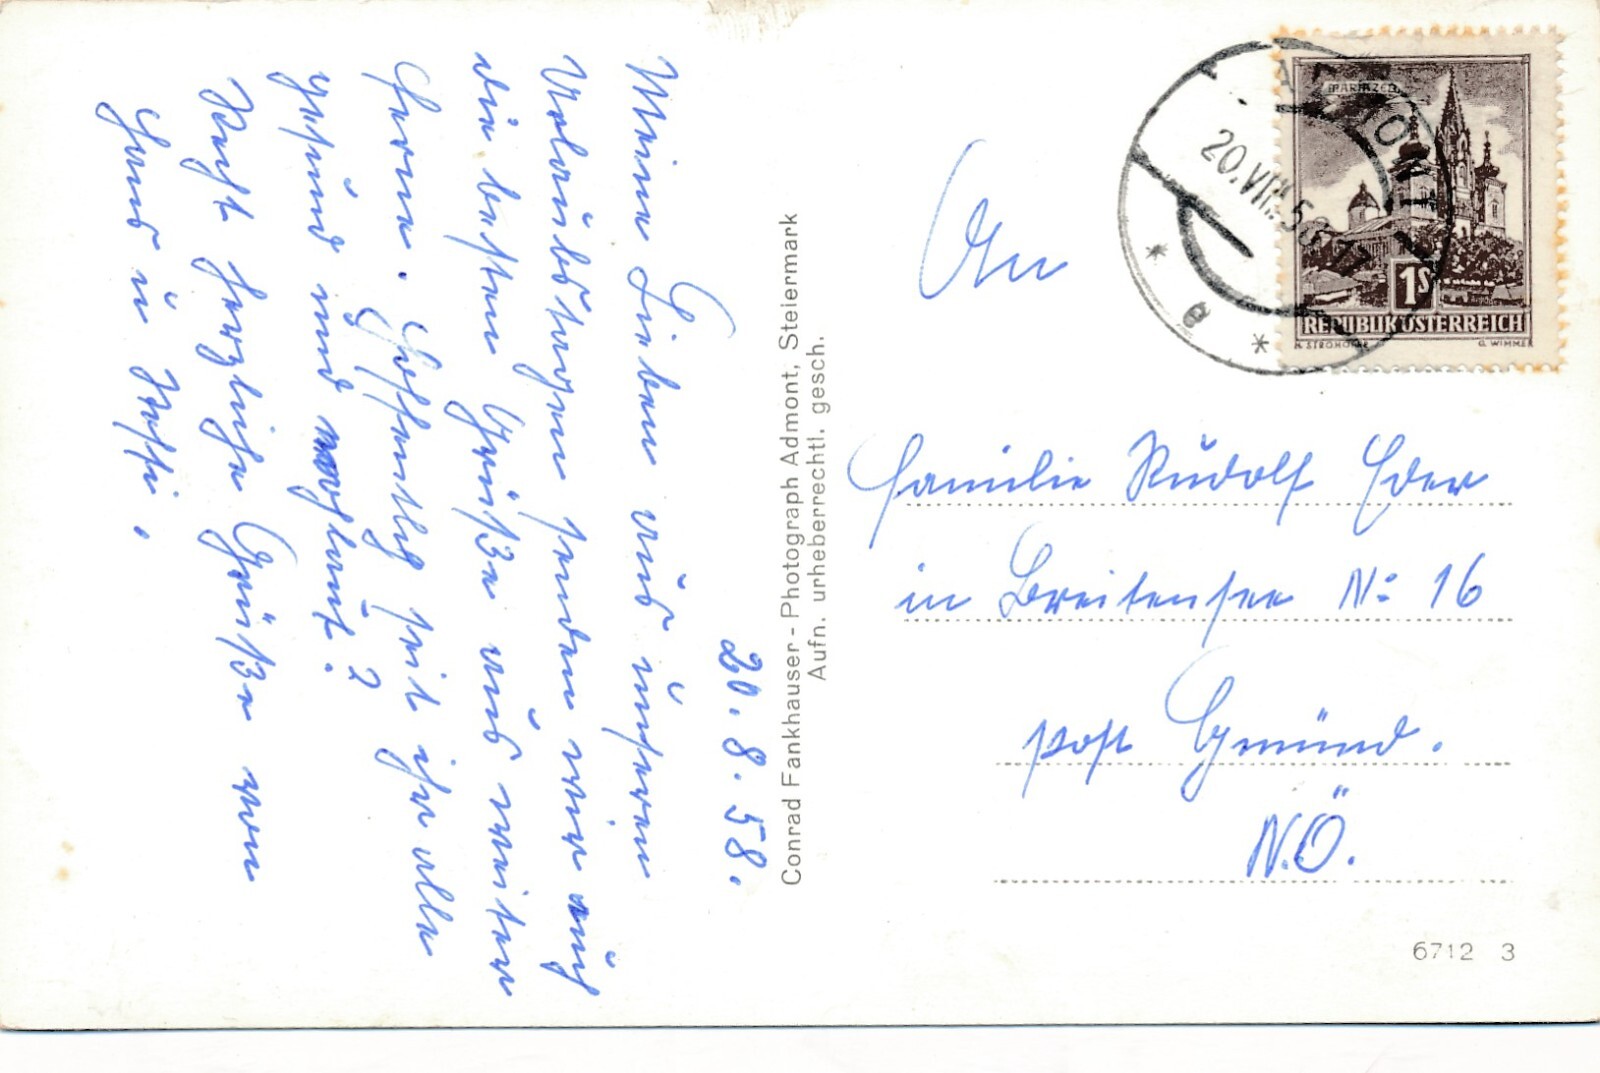 20. 8. 58.
Meine Lieben aus unseren
Urlaubstagen senden wir euch
die besten Grüße aus weiter
Ferne. Hoffentlich seit ihr alle
gesund und wohlauf?
Recht herzliche Grüße von
Hans u Steffi.
Conrad Fankhauser - Photograph Admont, Steiermark
Aufn. urheberrechtl. gesch.
ADMONT
20.VIII.58 17
* e *
MARIAZELL
1S
REPUBLIK ÖSTERREICH
H. STROHOFER G. WIMMER
An
Familie Rudolf Eder
in Breitensee No 16
post Gmünd.
N.Ö.
6712 3